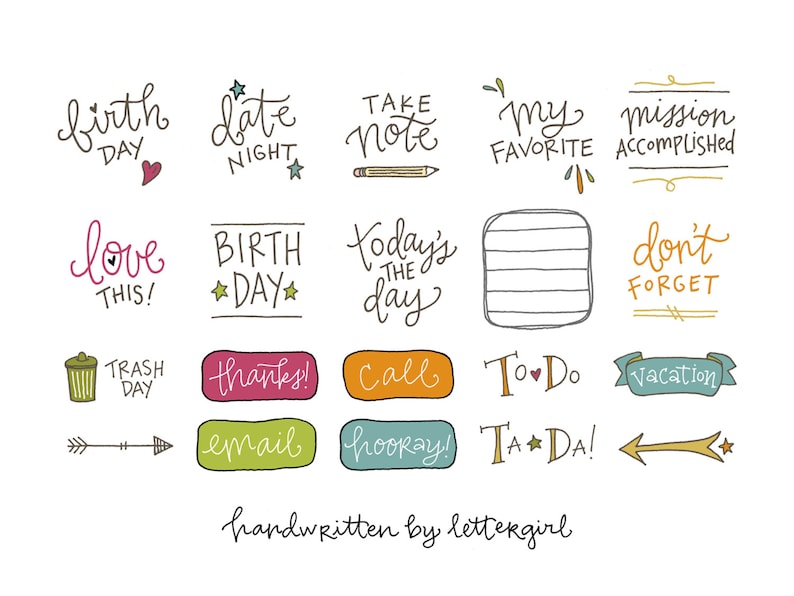 birth
DAY
date
NIGHT
TAKE
note
my
FAVORITE
mission
ACCOMPLISHED
love
THIS!
BIRTH
DAY
today's
THE
day
don't
FORGET
TRASH
DAY
thanks!
call
TO DO
vacation
email
hooray!
TA DA!
handwritten by lettergirl